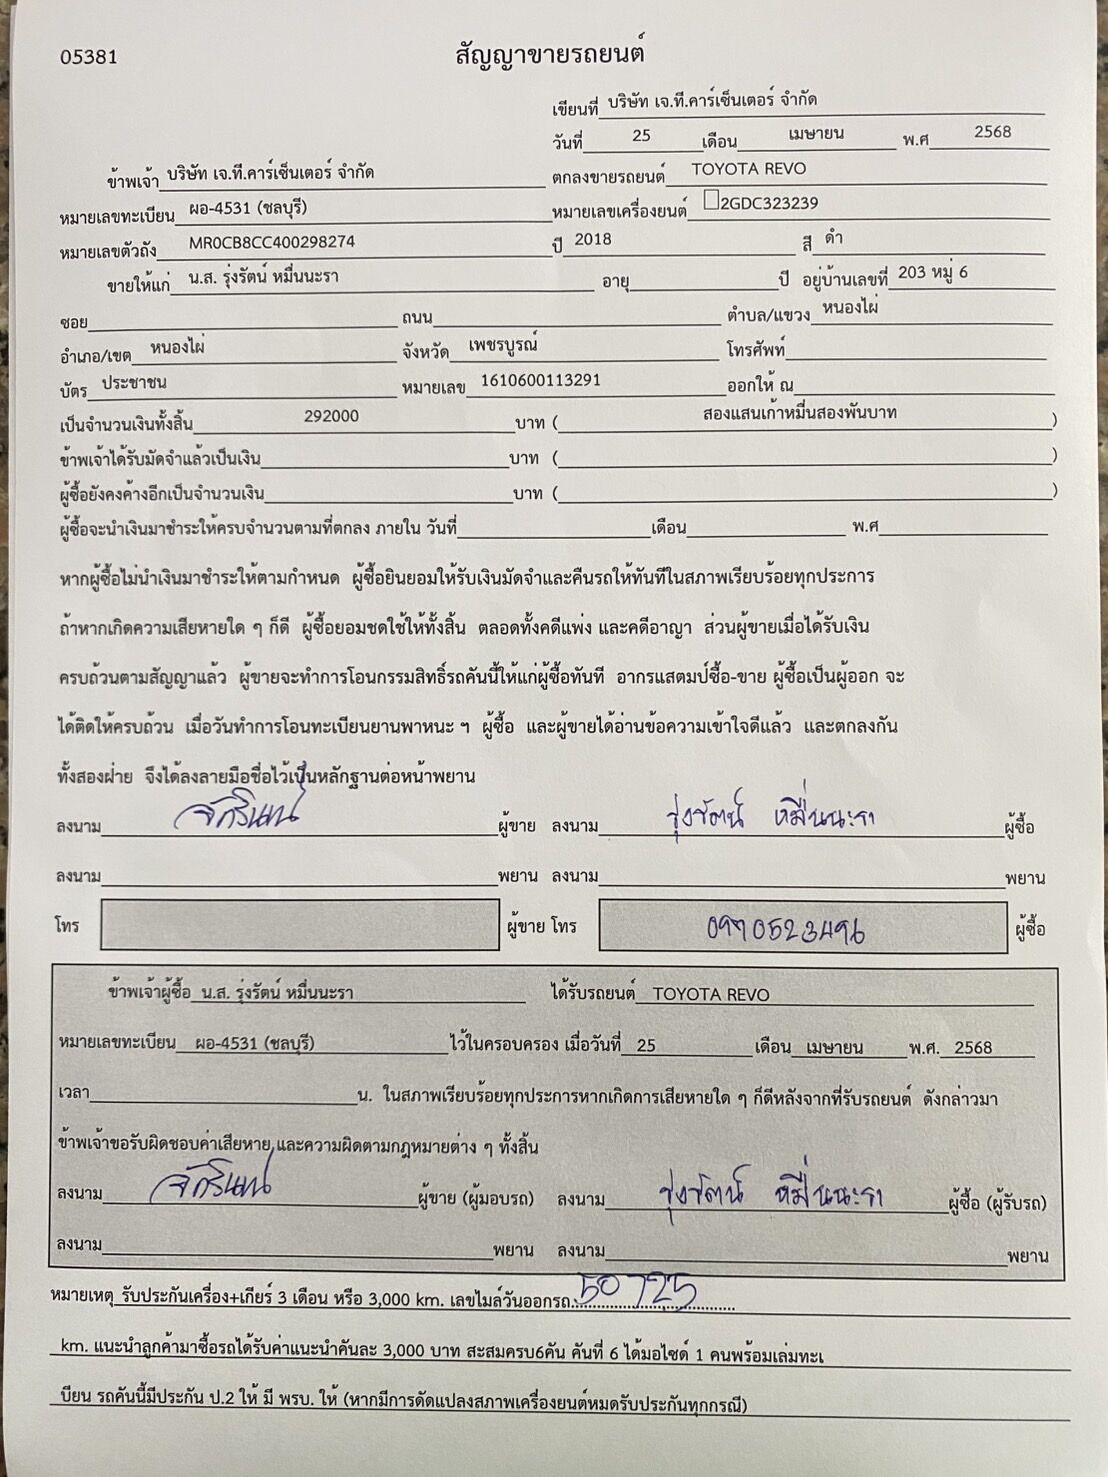 05381
สัญญาขายรถยนต์
เขียนที่ บริษัท เจ.ที.คาร์เซ็นเตอร์ จำกัด
วันที่ 25 เดือน เมษายน พ.ศ 2568
ข้าพเจ้า บริษัท เจ.ที.คาร์เซ็นเตอร์ จำกัด ตกลงขายรถยนต์ TOYOTA REVO
หมายเลขทะเบียน ผอ-4531 (ชลบุรี) หมายเลขเครื่องยนต์ 2GDC323239
หมายเลขตัวถัง MR0CB8CC400298274 ปี 2018 สี ดำ
ขายให้แก่ น.ส. รุ่งรัตน์ หมื่นนะรา อายุ ปี อยู่บ้านเลขที่ 203 หมู่ 6
ซอย ถนน ตำบล/แขวง หนองไผ่
อำเภอ/เขต หนองไผ่ จังหวัด เพชรบูรณ์ โทรศัพท์
บัตร ประชาชน หมายเลข 1610600113291 ออกให้ ณ
เป็นจำนวนเงินทั้งสิ้น 292000 บาท ( สองแสนเก้าหมื่นสองพันบาท )
ข้าพเจ้าได้รับมัดจำแล้วเป็นเงิน บาท ( )
ผู้ซื้อยังคงค้างอีกเป็นจำนวนเงิน บาท ( )
ผู้ซื้อจะนำเงินมาชำระให้ครบจำนวนตามที่ตกลง ภายใน วันที่ เดือน พ.ศ
หากผู้ซื้อไม่นำเงินมาชำระให้ตามกำหนด ผู้ซื้อยินยอมให้รับเงินมัดจำและคืนรถให้ทันทีในสภาพเรียบร้อยทุกประการ
ถ้าหากเกิดความเสียหายใด ๆ ก็ดี ผู้ซื้อยอมชดใช้ให้ทั้งสิ้น ตลอดทั้งคดีแพ่ง และคดีอาญา ส่วนผู้ขายเมื่อได้รับเงิน
ครบถ้วนตามสัญญาแล้ว ผู้ขายจะทำการโอนกรรมสิทธิ์รถคันนี้ให้แก่ผู้ซื้อทันที อากรแสตมป์ซื้อ-ขาย ผู้ซื้อเป็นผู้ออก จะ
ได้ติดให้ครบถ้วน เมื่อวันทำการโอนทะเบียนยานพาหนะ ฯ ผู้ซื้อ และผู้ขายได้อ่านข้อความเข้าใจดีแล้ว และตกลงกัน
ทั้งสองฝ่าย จึงได้ลงลายมือชื่อไว้เป็นหลักฐานต่อหน้าพยาน
ลงนาม ผู้ขาย ลงนาม รุ่งรัตน์ หมื่นนะรา ผู้ซื้อ
ลงนาม พยาน ลงนาม พยาน
โทร ผู้ขาย โทร 0970523496 ผู้ซื้อ
ข้าพเจ้าผู้ซื้อ น.ส. รุ่งรัตน์ หมื่นนะรา ได้รับรถยนต์ TOYOTA REVO
หมายเลขทะเบียน ผอ-4531 (ชลบุรี) ไว้ในครอบครอง เมื่อวันที่ 25 เดือน เมษายน พ.ศ. 2568
เวลา น. ในสภาพเรียบร้อยทุกประการหากเกิดการเสียหายใด ๆ ก็ดีหลังจากที่รับรถยนต์ ดังกล่าวมา
ข้าพเจ้าขอรับผิดชอบค่าเสียหาย และความผิดตามกฎหมายต่าง ๆ ทั้งสิ้น
ลงนาม ผู้ขาย (ผู้มอบรถ) ลงนาม รุ่งรัตน์ หมื่นนะรา ผู้ซื้อ (ผู้รับรถ)
ลงนาม พยาน ลงนาม พยาน
หมายเหตุ รับประกันเครื่อง+เกียร์ 3 เดือน หรือ 3,000 km. เลขไมล์วันออกรถ 50725
km. แนะนำลูกค้ามาซื้อรถได้รับค่าแนะนำคันละ 3,000 บาท สะสมครบ6คัน คันที่ 6 ได้มอไซด์ 1 คนพร้อมเล่มทะเ
บียน รถคันนี้มีประกัน ป.2 ให้ มี พรบ. ให้ (หากมีการดัดแปลงสภาพเครื่องยนต์หมดรับประกันทุกกรณี)